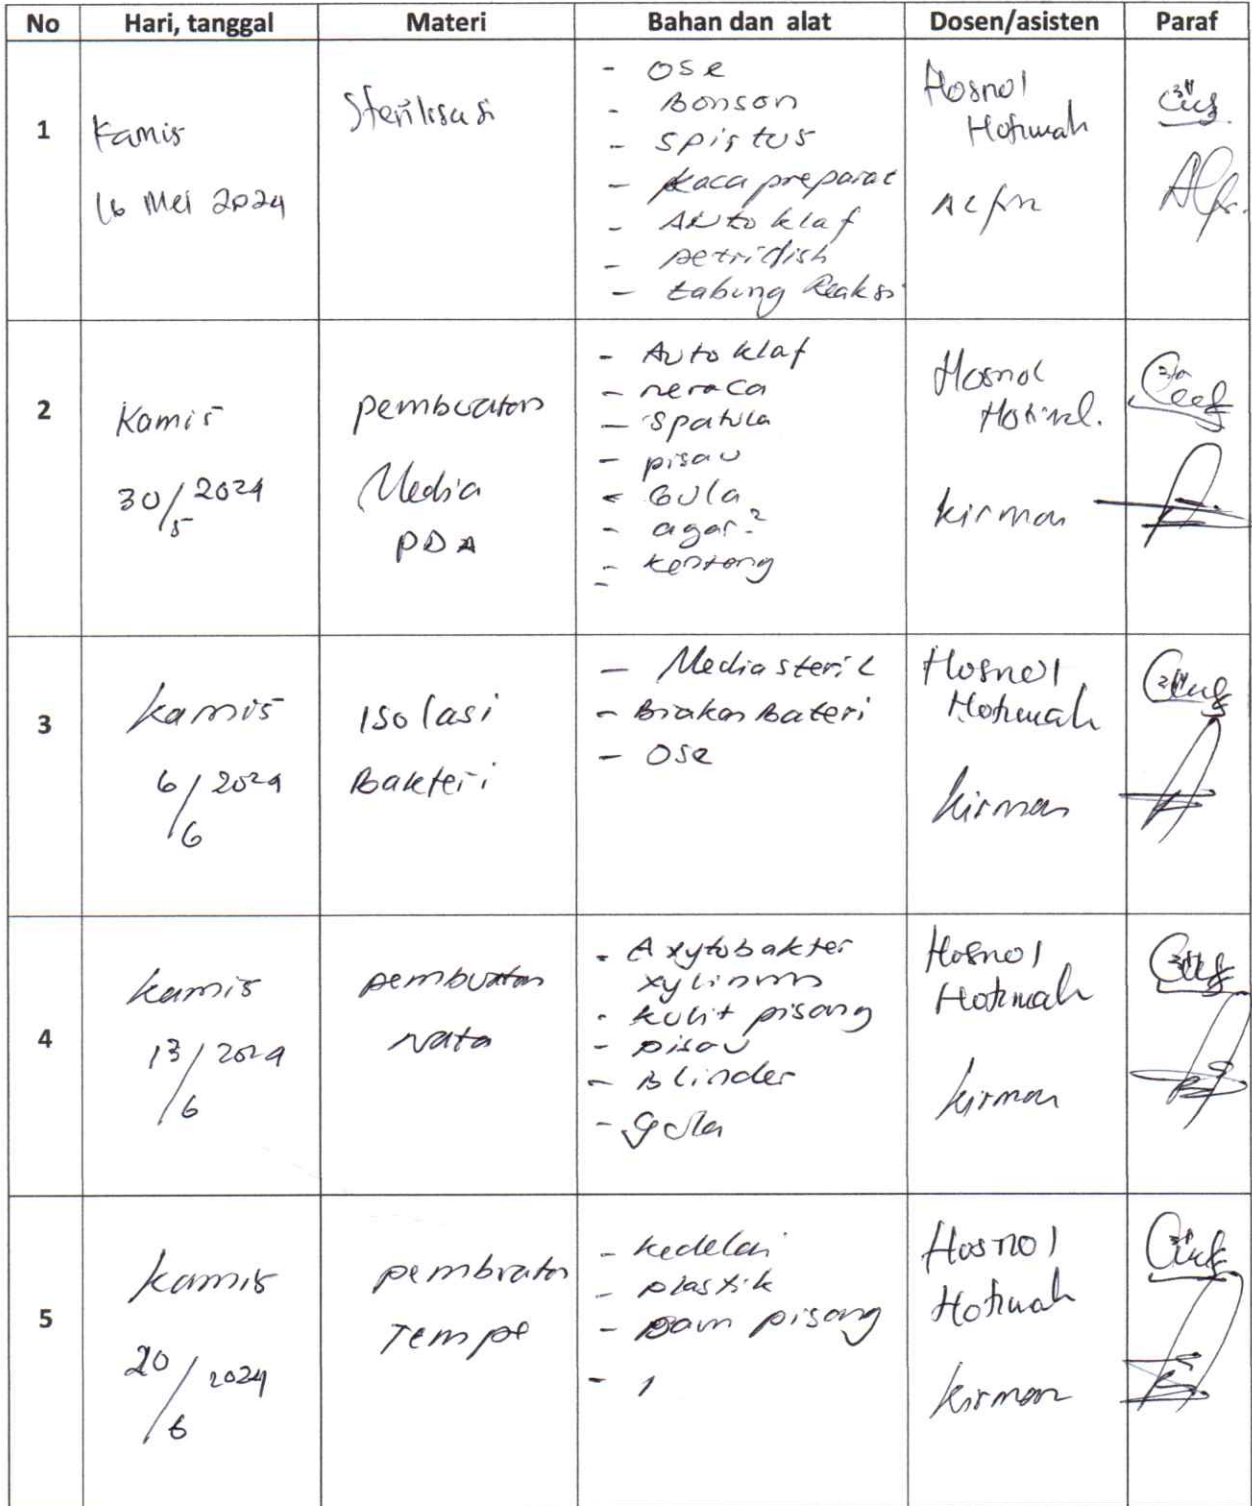 No Hari, tanggal Materi Bahan dan alat Dosen/asisten Paraf
1
Kamis
16 Mei 2024
Sterilisasi
- Ose
- Bonson
- Spirtus
- kaca preparat
- Autoklaf
- petridish
- tabung Reaksi
Hosnol
Hotimah
2
Kamis
30/5 2024
pembuatan
Media
PDA
- Autoklaf
- neraca
- Spatula
- pisau
- Gula
- agar²
- kentang
-
Hosnol
kirman
3
kamis
6/6 2024
Isolasi
Bakteri
- Media steril
- Biakan Bateri
- Ose
Hosnol
Hotimah
kirman
4
kamis
13/6 2024
pembuatan
Nata
- Axytobakter
xylinum
- kulit pisang
- pisau
- Blinder
- gula
Hosnol
Hotimah
kirman
5
kamis
20/6 2024
pembuatan
Tempe
- kedelai
- plastik
- Daun pisang
-
Hosnol
Hotimah
kirman